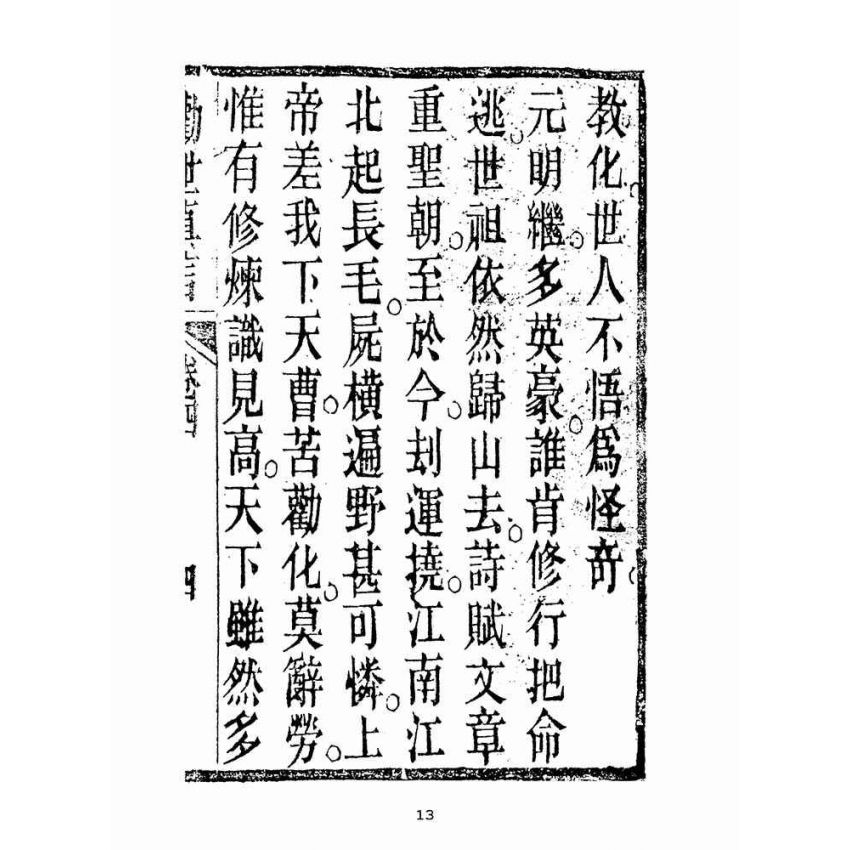 教化。世人不悟爲怪奇。
元明繼。多英豪。誰肯修行把命
逃。世祖依然歸山去。詩賦文章
重聖朝。至於今。刦運撓。江南江
北起長毛。屍橫遍野甚可憐。上
帝差我下天曹。苦勸化。莫辭勞。
惟有修煉識見高。天下雖然多
勸世
四
13